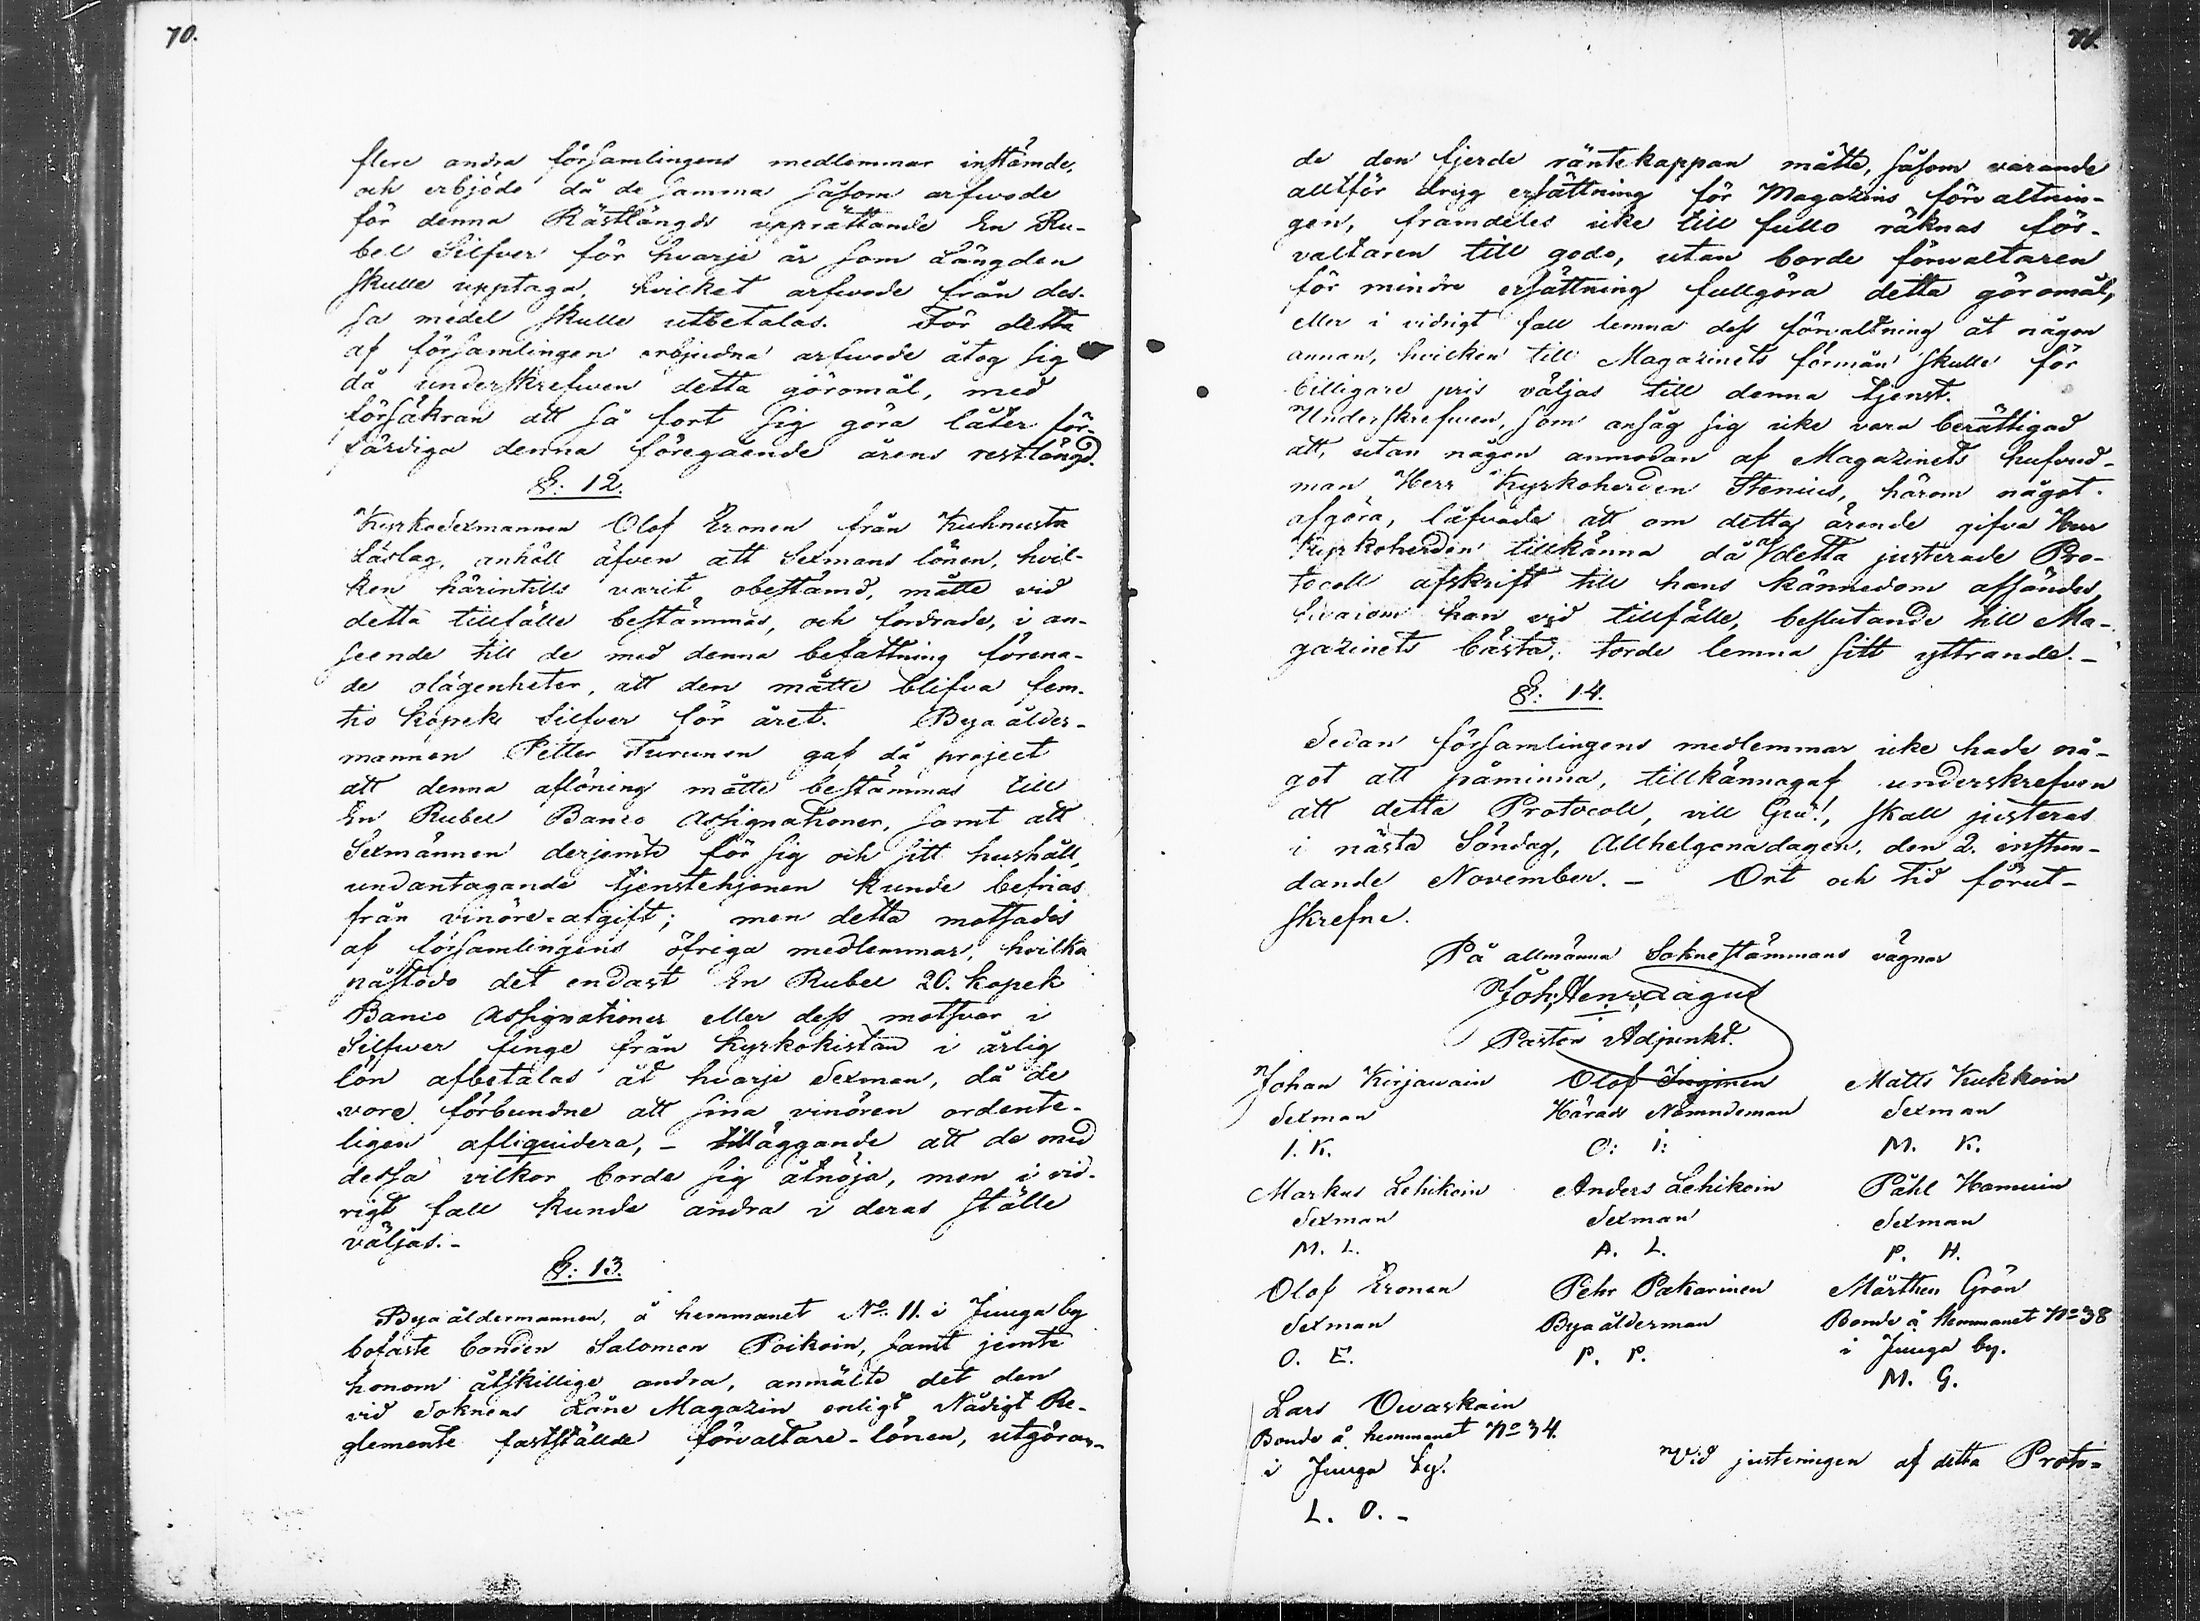 70.
flere andra församlingens medlemmar instämde,
och erbjödo då de samma såsom arfwode
för denna Rästlängds upprättande En Ru-
bel Silfver för hvarje år som Längden
skulle upptaga, hvilket arfwode från des-
sa medel skulle utbetalas. För detta
af församlingen erbjudna arfwode åtog sig
då underskrefwen detta göromål, med
försäkran att så fort sig göra låter för-
färdiga denna föregående årens restlängd.
§: 12.
Kyrkosexmannen Olof Eronen från Kuhnusta
Läslag, anhöll äfven att Sexmans lönen, hvil-
ken härintills varit obestämd, måtte vid
detta tillfälle bestämmas, och fordrade, i an-
seende till de med denna befattning förena-
de olägenheter, att den måtte blifva fem-
tio kopek Silfver för året. Byaålder-
mannen Petter Turunen gaf då project
att denna aflöning måtte bestämmas till
En Rubel Banco Assignationer, samt att
Sexmännen derjemte för sig och sitt hushåll,
undantagande tjenstehjonen kunde befrias
från vinöre-afgift; men detta motsades
af församlingens öfriga medlemmar, hvilka
påstodo det endast En Rubel 20. kopek
Banco Assignationer eller dess motsvar i
Silfwer finge från Kyrkokistan i årlig
lön afbetalas åt hvarje Sexman, då de
vore förbundne att sina vinören ordente-
ligen afliquidera, - tilläggande att de med
dessa vilkor borde sig åtnöja, men i vid-
rigt fall kunde andra i deras ställe
väljas. -
§: 13.
Byaåldermannen, å hemmanet No. 11. i Juuga by
bofaste bonden Salomon Poikoin, samt jemte
honom åtskillige andra, anmälte det den
vid Soknens Låne Magazin enligt Nådigt Re-
glemente fastställde förvaltare-lönen, utgöran-
71.
de den fjerde räntekappan måtte, såsom varande
alltför dryg ersättning för Magazins förvaltnin-
gen, framdeles icke till fullo räknas för-
valtaren till godo, utan borde förwaltaren
för mindre ersättning fullgöra detta göromål,
eller i vidrigt fall lemna dess förvaltning åt någon
annan, hvilken till Magazinets förmån skulle för
billigare pris väljas till denna tjenst.
Underskrefwen, som ansåg sig icke vara berättigad
att, utan någon anmodan af Magazinets hufvud-
man Herr Kyrkoherden Stenius, härom något
afgöra, låfvade att om detta ärende gifva Herr
Kyrkoherden tillkänna då af detta justerade Pro-
tocoll afskrift till hans kännedom afsändes,
hvarom han vid tillfälle, beslutande till Ma-
gazinets bästa, torde lemna sitt yttrande. -
§: 14.
Sedan församlingens medlemmar icke hade nå-
got att påminna, tillkännagaf underskrefven
att detta Protocoll, vill Gud!, skall justeras
i nästa Söndag, Allhelgonadagen, den 2. instun-
dande November. - Ort och tid förut-
skrefne.
På allmänna Soknestämmans vägnar
Joh: Henr. Dagus
Pastors Adjunkt.
Johan Kirjawain Olof Inginen Matts Kukkoin
Sexman Härads Nämndeman Sexman
I. K. O: I: M. K.
Markus Lehikoin Anders Lehikoin Påhl Hamuin
Sexman Sexman Sexman
M. L. A. L. P. H.
Olof Eronen Pehr Pakarinen Mårthen Grön
Sexman Byaålderman Bonde å Hemmanet No 38
O. E. P. P. i Juuga by.
M. G.
Lars Owaskain
Bonde å hemmanet No 34.
i Juuga by.
L. O. -
Vid justeringen af detta Proto-